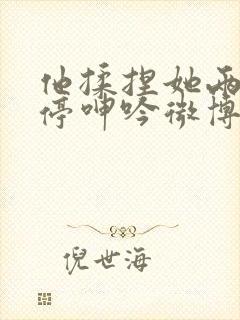 他揉捏她两
停呻吟微博
倪世海